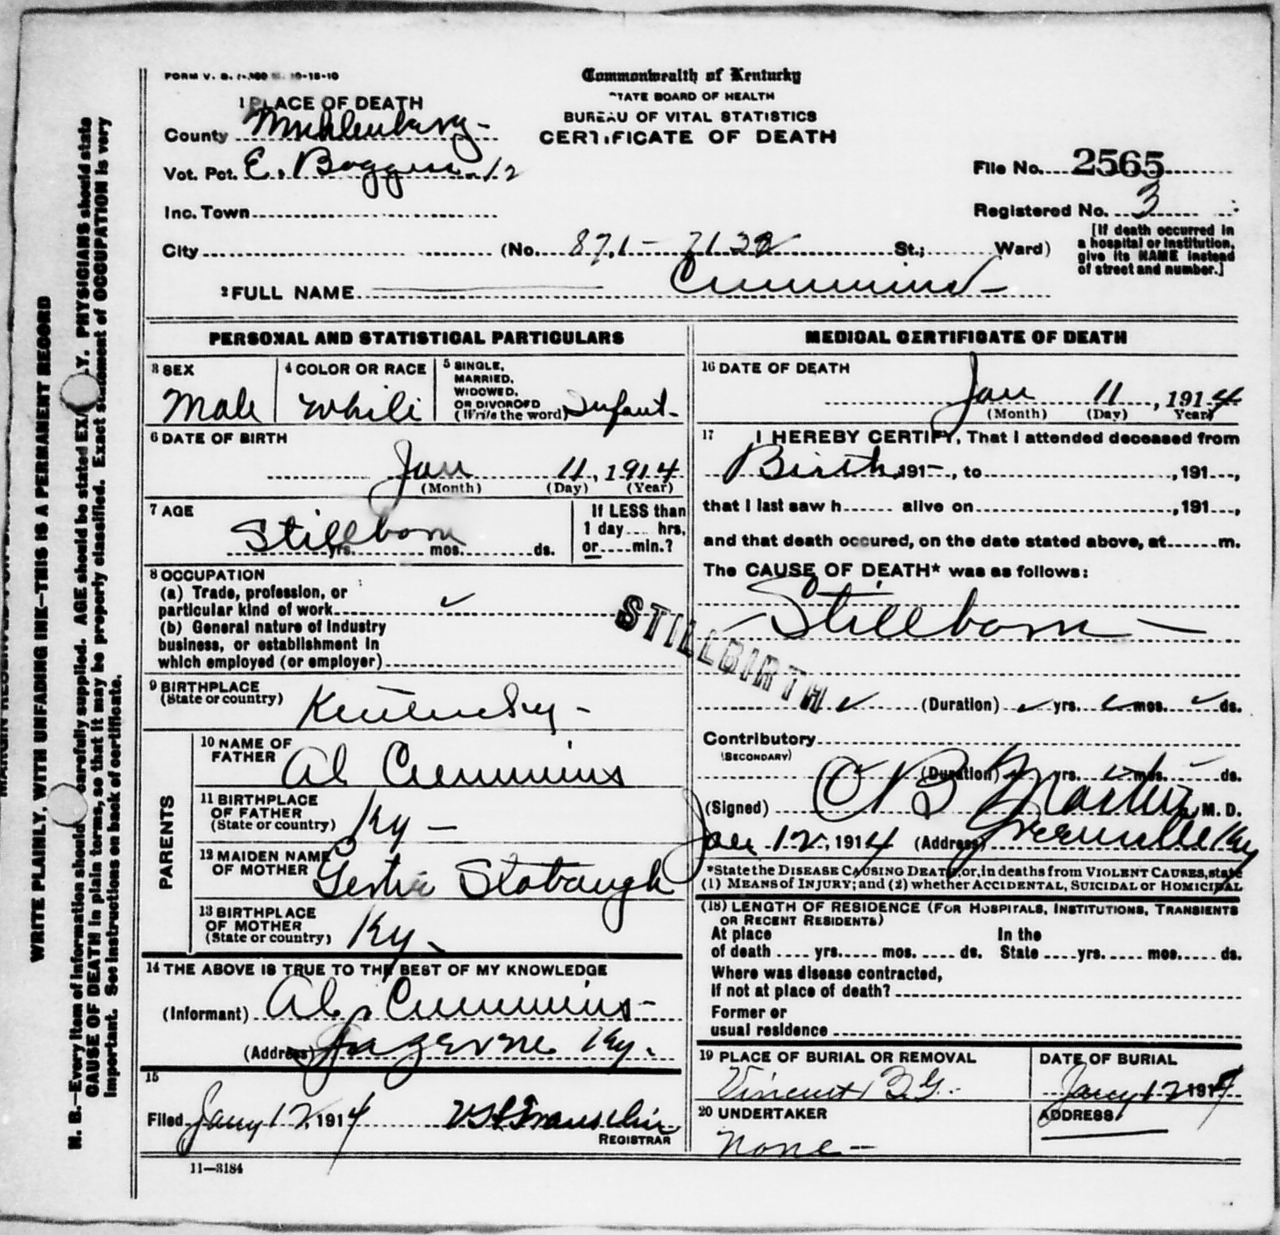 FORM V. S. 10-15-10
Commonwealth of Kentucky
STATE BOARD OF HEALTH
BUREAU OF VITAL STATISTICS
CERTIFICATE OF DEATH
1 PLACE OF DEATH
County Muhlenberg-
Vot. Pct. E. Boggess 12
Inc. Town
City (No. 871- St.; Ward)
File No. 2565
Registered No. 3
[If death occurred in
a hospital or institution,
give its NAME instead
of street and number.]
2 FULL NAME Cummins-
PERSONAL AND STATISTICAL PARTICULARS
3 SEX
Male
4 COLOR OR RACE
White
5 SINGLE,
MARRIED,
WIDOWED,
OR DIVORCED
(Write the word) Infant-
6 DATE OF BIRTH
Jan 11, 1914
(Month) (Day) (Year)
7 AGE
Stillborn
yrs. mos. ds.
If LESS than
1 day.... hrs.
or.....min.?
8 OCCUPATION
(a) Trade, profession, or
particular kind of work ✓
(b) General nature of Industry
business, or establishment in
which employed (or employer)
9 BIRTHPLACE
(State or country) Kentucky-
PARENTS
10 NAME OF
FATHER Al Cummins
11 BIRTHPLACE
OF FATHER
(State or country) Ky-
12 MAIDEN NAME
OF MOTHER Gertie Stobaugh
13 BIRTHPLACE
OF MOTHER
(State or country) Ky-
14 THE ABOVE IS TRUE TO THE BEST OF MY KNOWLEDGE
(Informant) Al Cummins-
(Address) Ky.
15
Filed Jany 12 1914
REGISTRAR
11-3184
MEDICAL CERTIFICATE OF DEATH
16 DATE OF DEATH
Jan 11, 1914
(Month) (Day) (Year)
17 I HEREBY CERTIFY, That I attended deceased from
Birth, 191-, to ,191...,
that I last saw h...... alive on ,191...,
and that death occured, on the date stated above, at......m.
The CAUSE OF DEATH* was as follows:
Stillborn-
STILLBIRTH
✓ (Duration) ✓ yrs. ✓ mos. ✓ ds.
Contributory
(SECONDARY)
(Duration) yrs. mos. ds.
(Signed) C B Martin M. D.
Jan 12, 1914 (Address) Greenville Ky
*State the DISEASE CAUSING DEATH, or, in deaths from VIOLENT CAUSES, state
(1) MEANS of INJURY; and (2) whether ACCIDENTAL, SUICIDAL or HOMICIDAL
(18) LENGTH OF RESIDENCE (FOR HOSPITALS, INSTITUTIONS, TRANSIENTS
OR RECENT RESIDENTS)
At place In the
of death .... yrs. mos. ds. State ....yrs. mos. ds.
Where was disease contracted,
If not at place of death?
Former or
usual residence
19 PLACE OF BURIAL OR REMOVAL
Vincent B.G.
DATE OF BURIAL
Jany 12 1914
20 UNDERTAKER
none-
ADDRESS
WRITE PLAINLY, WITH UNFADING INK-THIS IS A PERMANENT RECORD
N. B.-Every item of information should carefully supplied. AGE should be stated EXACTLY. PHYSICIANS should state
CAUSE OF DEATH in plain terms, so that it may be properly classified. Exact statement of OCCUPATION is very
important. See instructions on back of certificate.